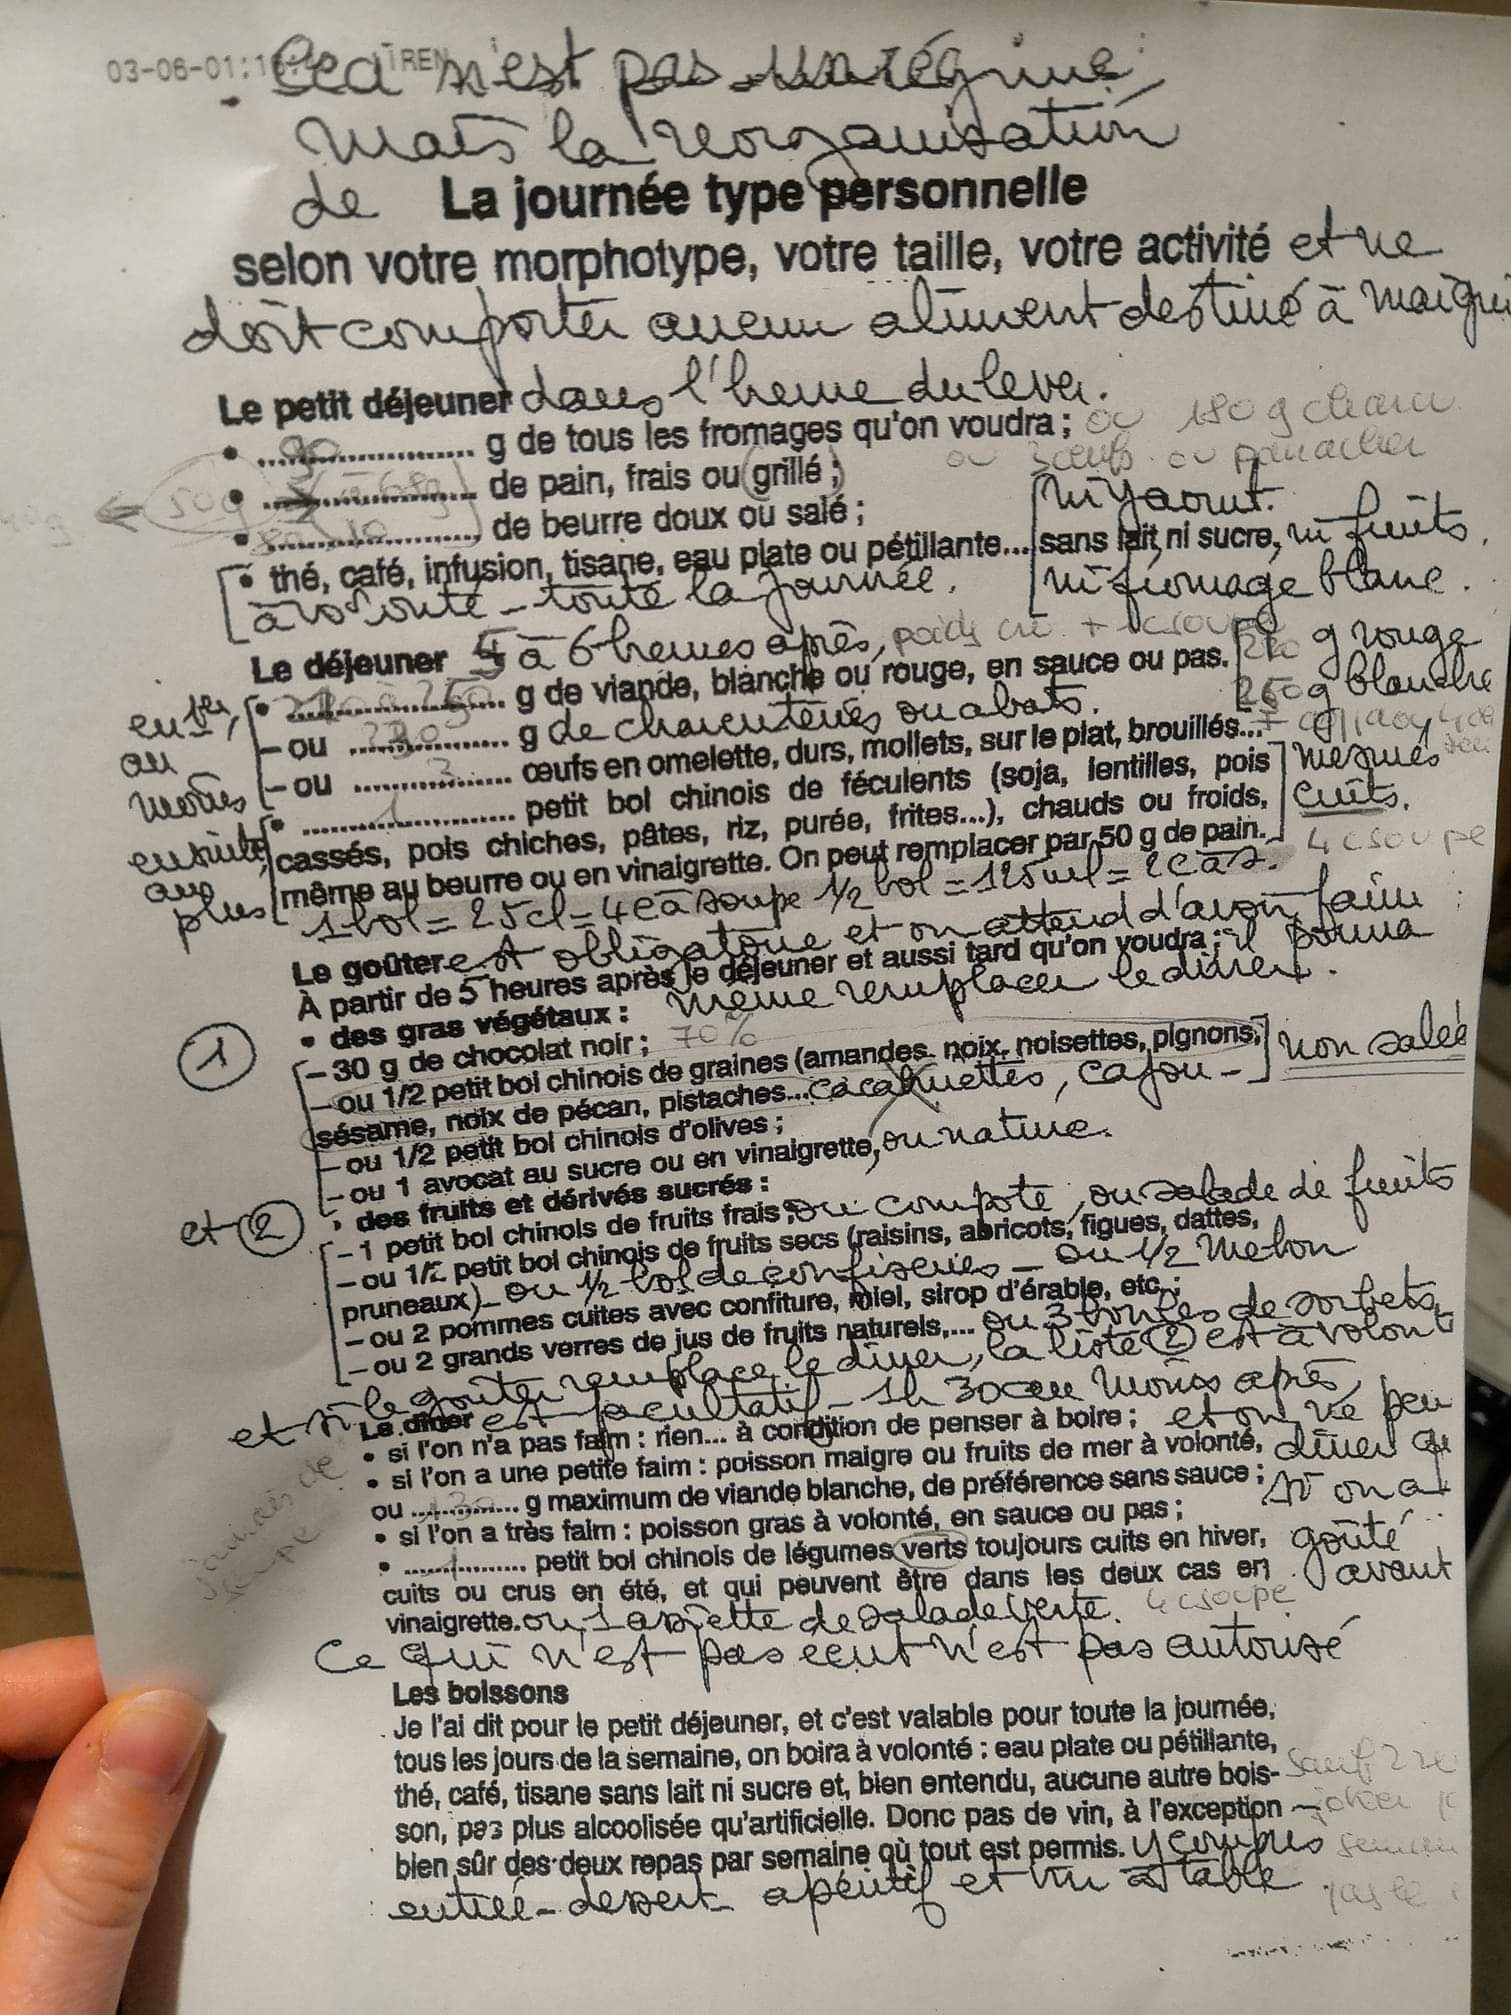 03-06-01:1
Ceci n'est pas un régime,
mais la réorganisation
de La journée type personnelle
selon votre morphotype, votre taille, votre activité et ne
doit comporter aucun aliment destiné à maigri
Le petit déjeuner dans l'heure du lever.
• 90 g de tous les fromages qu'on voudra ; ou 180 g
ou 3 œufs ou panacher
• 50g de pain, frais ou grillé ; ni yaourt.
• de beurre doux ou salé ;
• thé, café, infusion, tisane, eau plate ou pétillante... sans lait ni sucre, ni fruits,
à volonté - toute la journée. ni fromage blanc.
Le déjeuner 5 à 6 heures après, poids cru
• g de viande, blanche ou rouge, en sauce ou pas. g rouge
en 1er, 250g blanche
au - ou g de charcuteries ou abats.
moins - ou 3 œufs en omelette, durs, mollets, sur le plat, brouillés...
• 1 petit bol chinois de féculents (soja, lentilles, pois mesurés
ensuite, cassés, pois chiches, pâtes, riz, purée, frites...), chauds ou froids, cuits.
au même au beurre ou en vinaigrette. On peut remplacer par 50 g de pain. 4 c soupe
plus 1 bol = 25cl = 4 c à soupe 1/2 bol = 125ml = 2 c à s.
Le goûter est obligatoire et on attend d'avoir faim
À partir de 5 heures après le déjeuner et aussi tard qu'on voudra ; il pourra
même remplacer le dîner.
• des gras végétaux :
1 – 30 g de chocolat noir ; 70%
– ou 1/2 petit bol chinois de graines (amandes, noix, noisettes, pignons, non salé
sésame, noix de pécan, pistaches... cacahuettes, cajou -
– ou 1/2 petit bol chinois d'olives ;
– ou 1 avocat au sucre ou en vinaigrette, ou nature.
et 2 • des fruits et dérivés sucrés :
– 1 petit bol chinois de fruits frais, ou compote, ou salade de fruits
– ou 1/2 petit bol chinois de fruits secs (raisins, abricots, figues, dattes,
pruneaux) - ou 1/2 bol de confiseries - ou 1/2 melon
– ou 2 pommes cuites avec confiture, miel, sirop d'érable, etc. ;
– ou 2 grands verres de jus de fruits naturels,... ou 3 boules de sorbets,
et si le goûter remplace le dîner, la liste 2 est à volont
Le dîner est facultatif - 1h30 au moins après,
• si l'on n'a pas faim : rien... à condition de penser à boire ; et on ne peu
• si l'on a une petite faim : poisson maigre ou fruits de mer à volonté, dîner qu
ou 130 g maximum de viande blanche, de préférence sans sauce ; si on a
• si l'on a très faim : poisson gras à volonté, en sauce ou pas ;
• 1 petit bol chinois de légumes verts toujours cuits en hiver, goûté
cuits ou crus en été, et qui peuvent être dans les deux cas en avant
vinaigrette. ou 1 assiette de salade verte. 4 c soupe
jamais de
soupe
Ce qui n'est pas écrit n'est pas autorisé
Les boissons
Je l'ai dit pour le petit déjeuner, et c'est valable pour toute la journée,
tous les jours de la semaine, on boira à volonté : eau plate ou pétillante,
thé, café, tisane sans lait ni sucre et, bien entendu, aucune autre bois-
son, pas plus alcoolisée qu'artificielle. Donc pas de vin, à l'exception
bien sûr des deux repas par semaine où tout est permis. y compris
sauf 2
joker
entrée - dessert - apéritif et vin à table